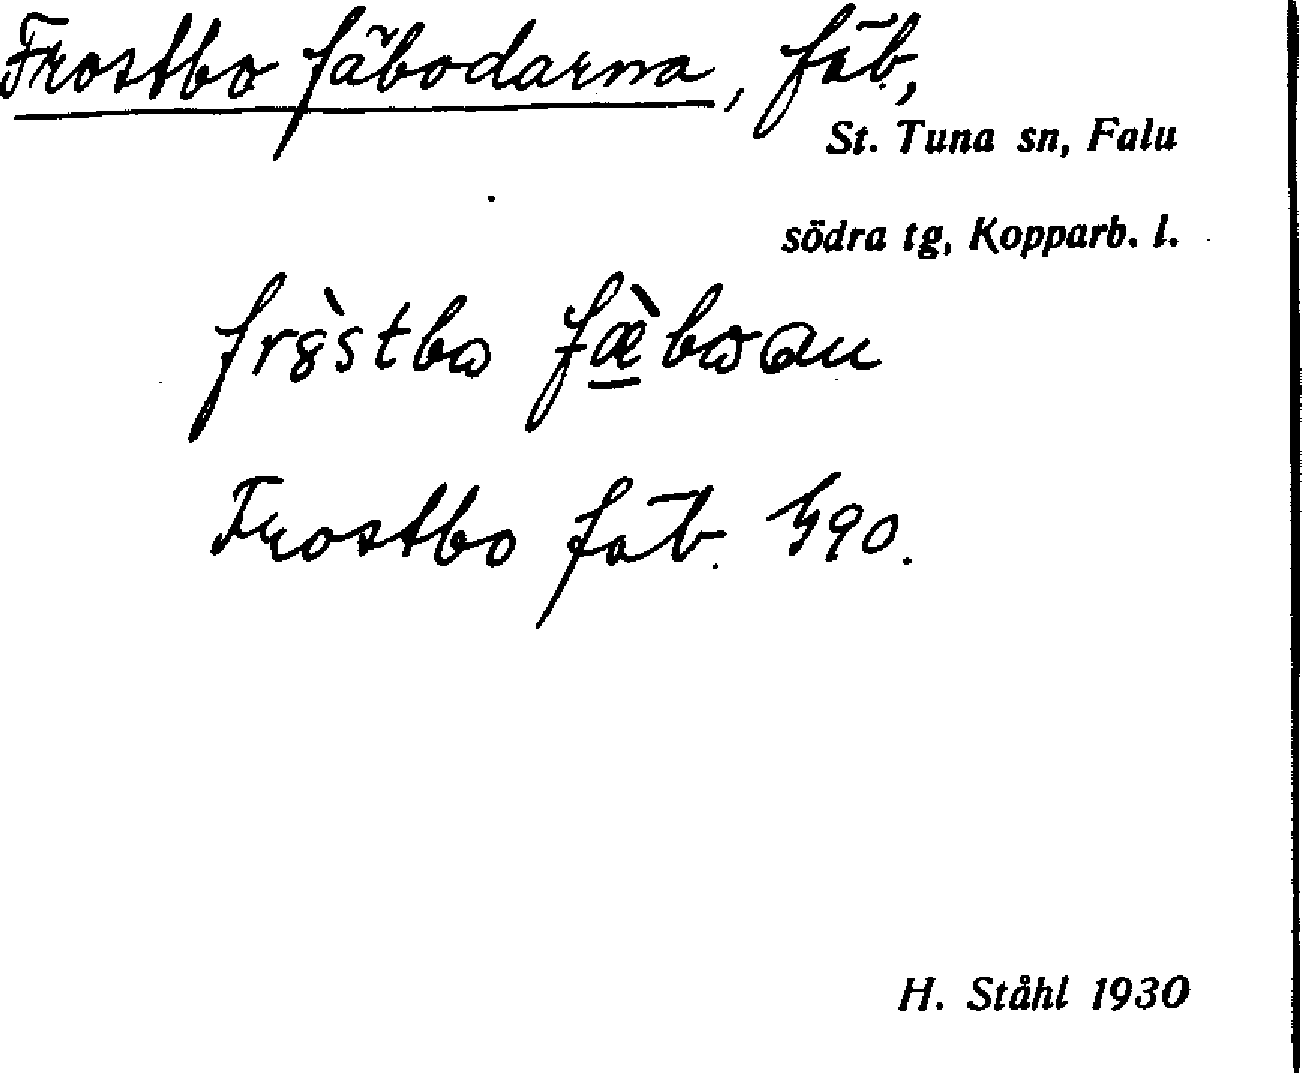 Frostbo fäbodarna, fäb,
St. Tuna sn, Falu
södra tg, Kopparb. l.
Frostbo fäb.
H. Ståhl 1930